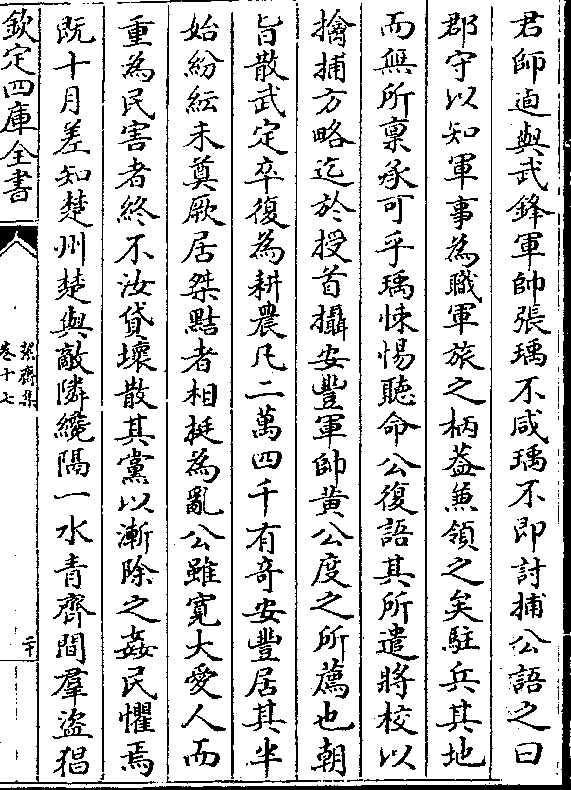 君師逈與武鋒軍帥張瑀不咸瑀不即討捕公語之曰
郡守以知軍事為職軍旅之柄葢兼領之矣駐兵其地
而無所稟承可乎瑀悚惕聽命公復語其所遣將校以
擒捕方略迄於授首攝安豐軍帥黄公度之所薦也朝
旨散武定卒復為耕農凡二萬四千有奇安豐居其半
始紛紜未奠厥居桀黠者相挺為亂公雖寛大愛人而
重為民害者終不汝貸壞散其黨以漸除之姦民懼焉
既十月差知楚州楚與敵隣纔隔一水青齊間羣盜猖
欽定四庫全書
絜齋集
卷十七
二十